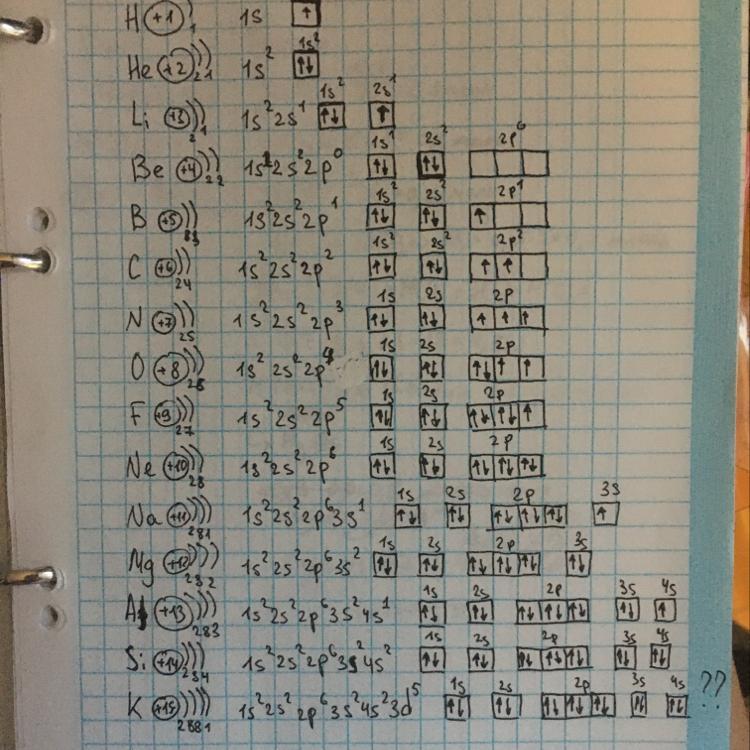 H +1 1 1s ↑
He +2 2 1 1s² 1s² ↑↓
Li +3 2 1 1s²2s¹ 1s² ↑↓ 2s¹ ↑
Be +4 2 2 1s²2s²2p⁰ 1s¹ ↑↓ 2s² ↑↓ 2p⁰
B +5 1s²2s²2p¹ 1s² ↑↓ 2s² ↑↓ 2p¹ ↑
C +6 24 1s²2s²2p² 1s² ↑↓ 2s² ↑↓ 2p² ↑ ↑
N +7 25 1s²2s²2p³ 1s ↑↓ 2s ↑↓ 2p ↑ ↑ ↑
O +8 26 1s²2s²2p⁴ 1s ↑↓ 2s ↑↓ 2p ↑↓ ↑ ↑
F +9 27 1s²2s²2p⁵ 1s ↑↓ 2s ↑↓ 2p ↑↓ ↑↓ ↑
Ne +10 28 1s²2s²2p⁶ 1s ↑↓ 2s ↑↓ 2p ↑↓ ↑↓ ↑↓
Na +11 281 1s²2s²2p⁶3s¹ 1s ↑↓ 2s ↑↓ 2p ↑↓ ↑↓ ↑↓ 3s ↑
Mg +12 282 1s²2s²2p⁶3s² 1s ↑↓ 2s ↑↓ 2p ↑↓ ↑↓ ↑↓ 3s ↑↓
Al +13 283 1s²2s²2p⁶3s²4s¹ 1s ↑↓ 2s ↑↓ 2p ↑↓ ↑↓ ↑↓ 3s ↑↓ 4s ↑
Si +14 284 1s²2s²2p⁶3s²4s² 1s ↑↓ 2s ↑↓ 2p ↑↓ ↑↓ ↑↓ 3s ↑↓ 4s ↑↓
K +19 2881 1s²2s²2p⁶3s²4s²3d⁵ 1s ↑↓ 2s ↑↓ 2p ↑↓ ↑↓ ↑↓ 3s ↑↓ 4s ↑↓ ??